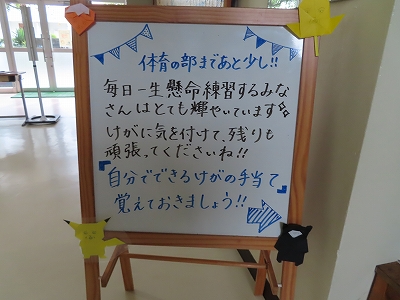 体育の部まであと少し!!
毎日一生懸命練習するみな
さんはとても輝やいています
けがに気を付けて、残りも
頑張ってくださいね!!
『自分でできるけがの手当て
覚えておきましょう!!』